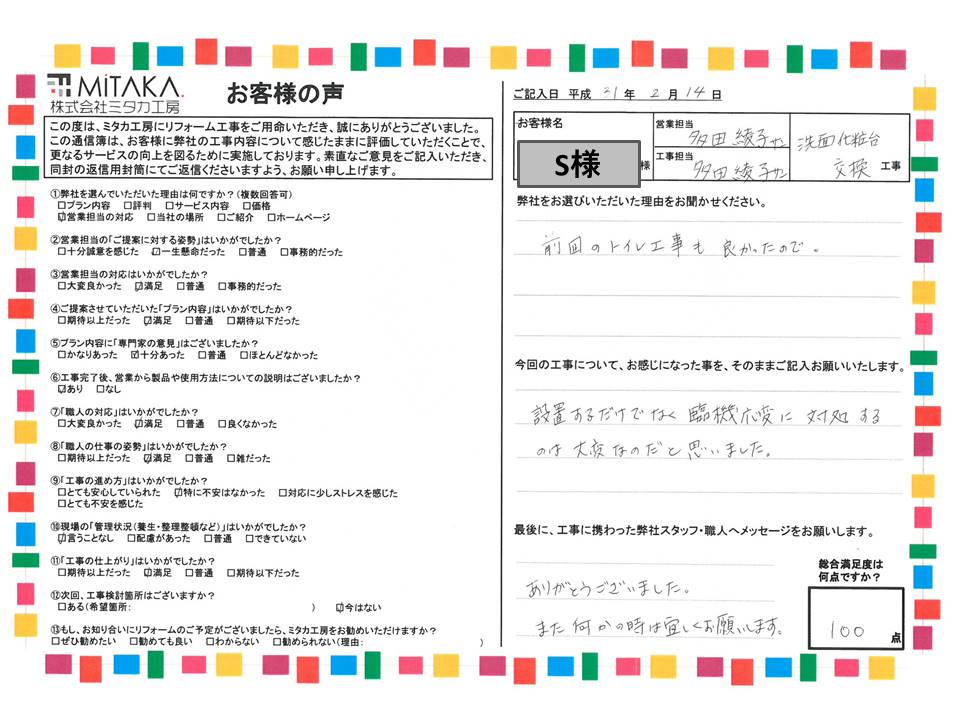 MiTAKA.
株式会社ミタカ工房
お客様の声
この度は、ミタカ工房にリフォーム工事をご用命いただき、誠にありがとうございました。
この通信簿は、お客様に弊社の工事内容について感じたままに評価していただくことで、
更なるサービスの向上を図るために実施しております。素直なご意見をご記入いただき、
同封の返信用封筒にてご返信くださいますよう、お願い申し上げます。
①弊社を選んでいただいた理由は何ですか?(複数回答可)
□プラン内容 □評判 □サービス内容 □価格
☑営業担当の対応 □当社の場所 □ご紹介 □ホームページ
②営業担当の「ご提案に対する姿勢」はいかがでしたか?
□十分誠意を感じた ☑一生懸命だった □普通 □事務的だった
③営業担当の対応はいかがでしたか?
□大変良かった ☑満足 □普通 □事務的だった
④ご提案させていただいた「プラン内容」はいかがでしたか?
□期待以上だった ☑満足 □普通 □期待以下だった
⑤プラン内容に「専門家の意見」はございましたか?
□かなりあった ☑十分あった □普通 □ほとんどなかった
⑥工事完了後、営業から製品や使用方法についての説明はございましたか?
☑あり □なし
⑦「職人の対応」はいかがでしたか?
□大変良かった ☑満足 □普通 □良くなかった
⑧「職人の仕事の姿勢」はいかがでしたか?
□期待以上だった ☑満足 □普通 □雑だった
⑨「工事の進め方」はいかがでしたか?
□とても安心していられた ☑特に不安はなかった □対応に少しストレスを感じた
□とても不安を感じた
⑩現場の「管理状況(養生・整理整頓など)」はいかがでしたか?
☑言うことなし □配慮があった □普通 □できていない
⑪「工事の仕上がり」はいかがでしたか?
□期待以上だった ☑満足 □普通 □期待以下だった
⑫次回、工事検討箇所はございますか?
□ある(希望箇所: ) ☑今はない
⑬もし、お知り合いにリフォームのご予定がございましたら、ミタカ工房をお勧めいただけますか?
□ぜひ勧めたい □勧めても良い □わからない □勧められない(理由: )
ご記入日 平成 31 年 2 月 14 日
お客様名
S様
様
営業担当
多田 綾子サン
工事担当
多田 綾子サン
洗面化粧台
交換 工事
弊社をお選びいただいた理由をお聞かせください。
前回のトイレ工事も良かったので。
今回の工事について、お感じになった事を、そのままご記入お願いいたします。
設置するだけでなく臨機応変に対処する
のは大変なのだと思いました。
最後に、工事に携わった弊社スタッフ・職人へメッセージをお願いします。
ありがとうございました。
また何かの時は宜しくお願いします。
総合満足度は
何点ですか?
100 点